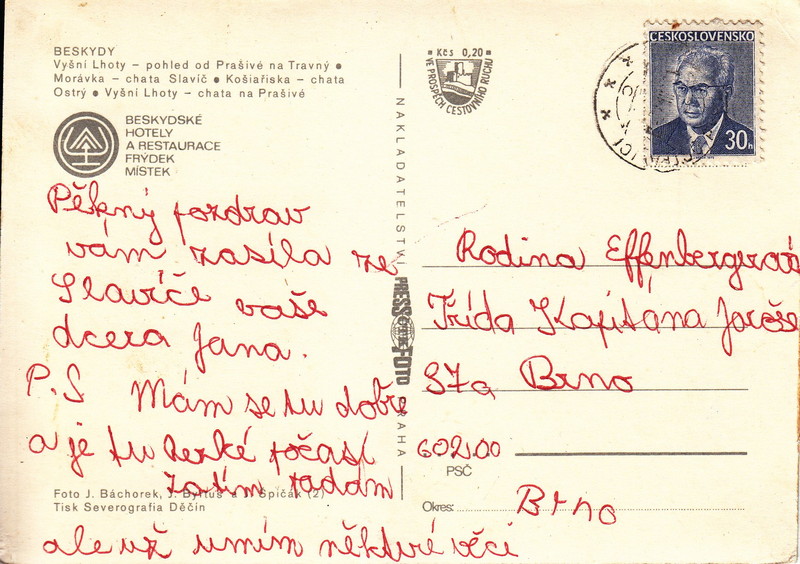 BESKYDY
Vyšní Lhoty – pohled od Prašivé na Travný •
Morávka – chata Slavíč • Košiařiska – chata
Ostrý • Vyšní Lhoty – chata na Prašivé
BESKYDSKÉ
HOTELY
A RESTAURACE
FRÝDEK
MÍSTEK
Pěkný pozdrav
vám zasíla ze
Slavíče vaše
dcera Jana.
P.S Mám se tu dobře
a je tu hezké počasí
zatím padám
ale už umím některé věci
Foto J. Báchorek, J. Byrtus a Špičák (2)
Tisk Severografia Děčín
NAKLADATELSTVÍ
PRESSFOTO
PRAHA
Kčs 0,20
VE PROSPĚCH CESTOVNÍHO RUCHU
ČESKOSLOVENSKO
30h
Rodina Effenbergerová
Třída Kapitána Jaroše
37a Brno
602 00
PSČ
Okres: Brno